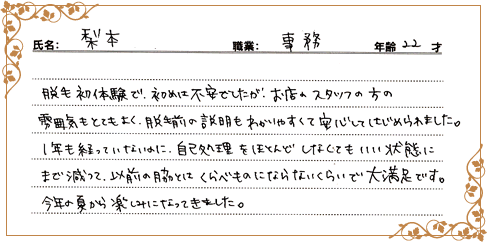 氏名: 梨本 職業: 事務 年齢 22 才
脱毛初体験で、初めは不安でしたが、お店のスタッフの方の
雰囲気もとてもよく、脱毛前の説明もわかりやすくて安心してはじめられました。
1年も経っていないのに、自己処理をほとんどしなくてもいい状態に
まで減って、以前の脇とはくらべものにならないくらいで大満足です。
今年の夏から楽しみになってきました。